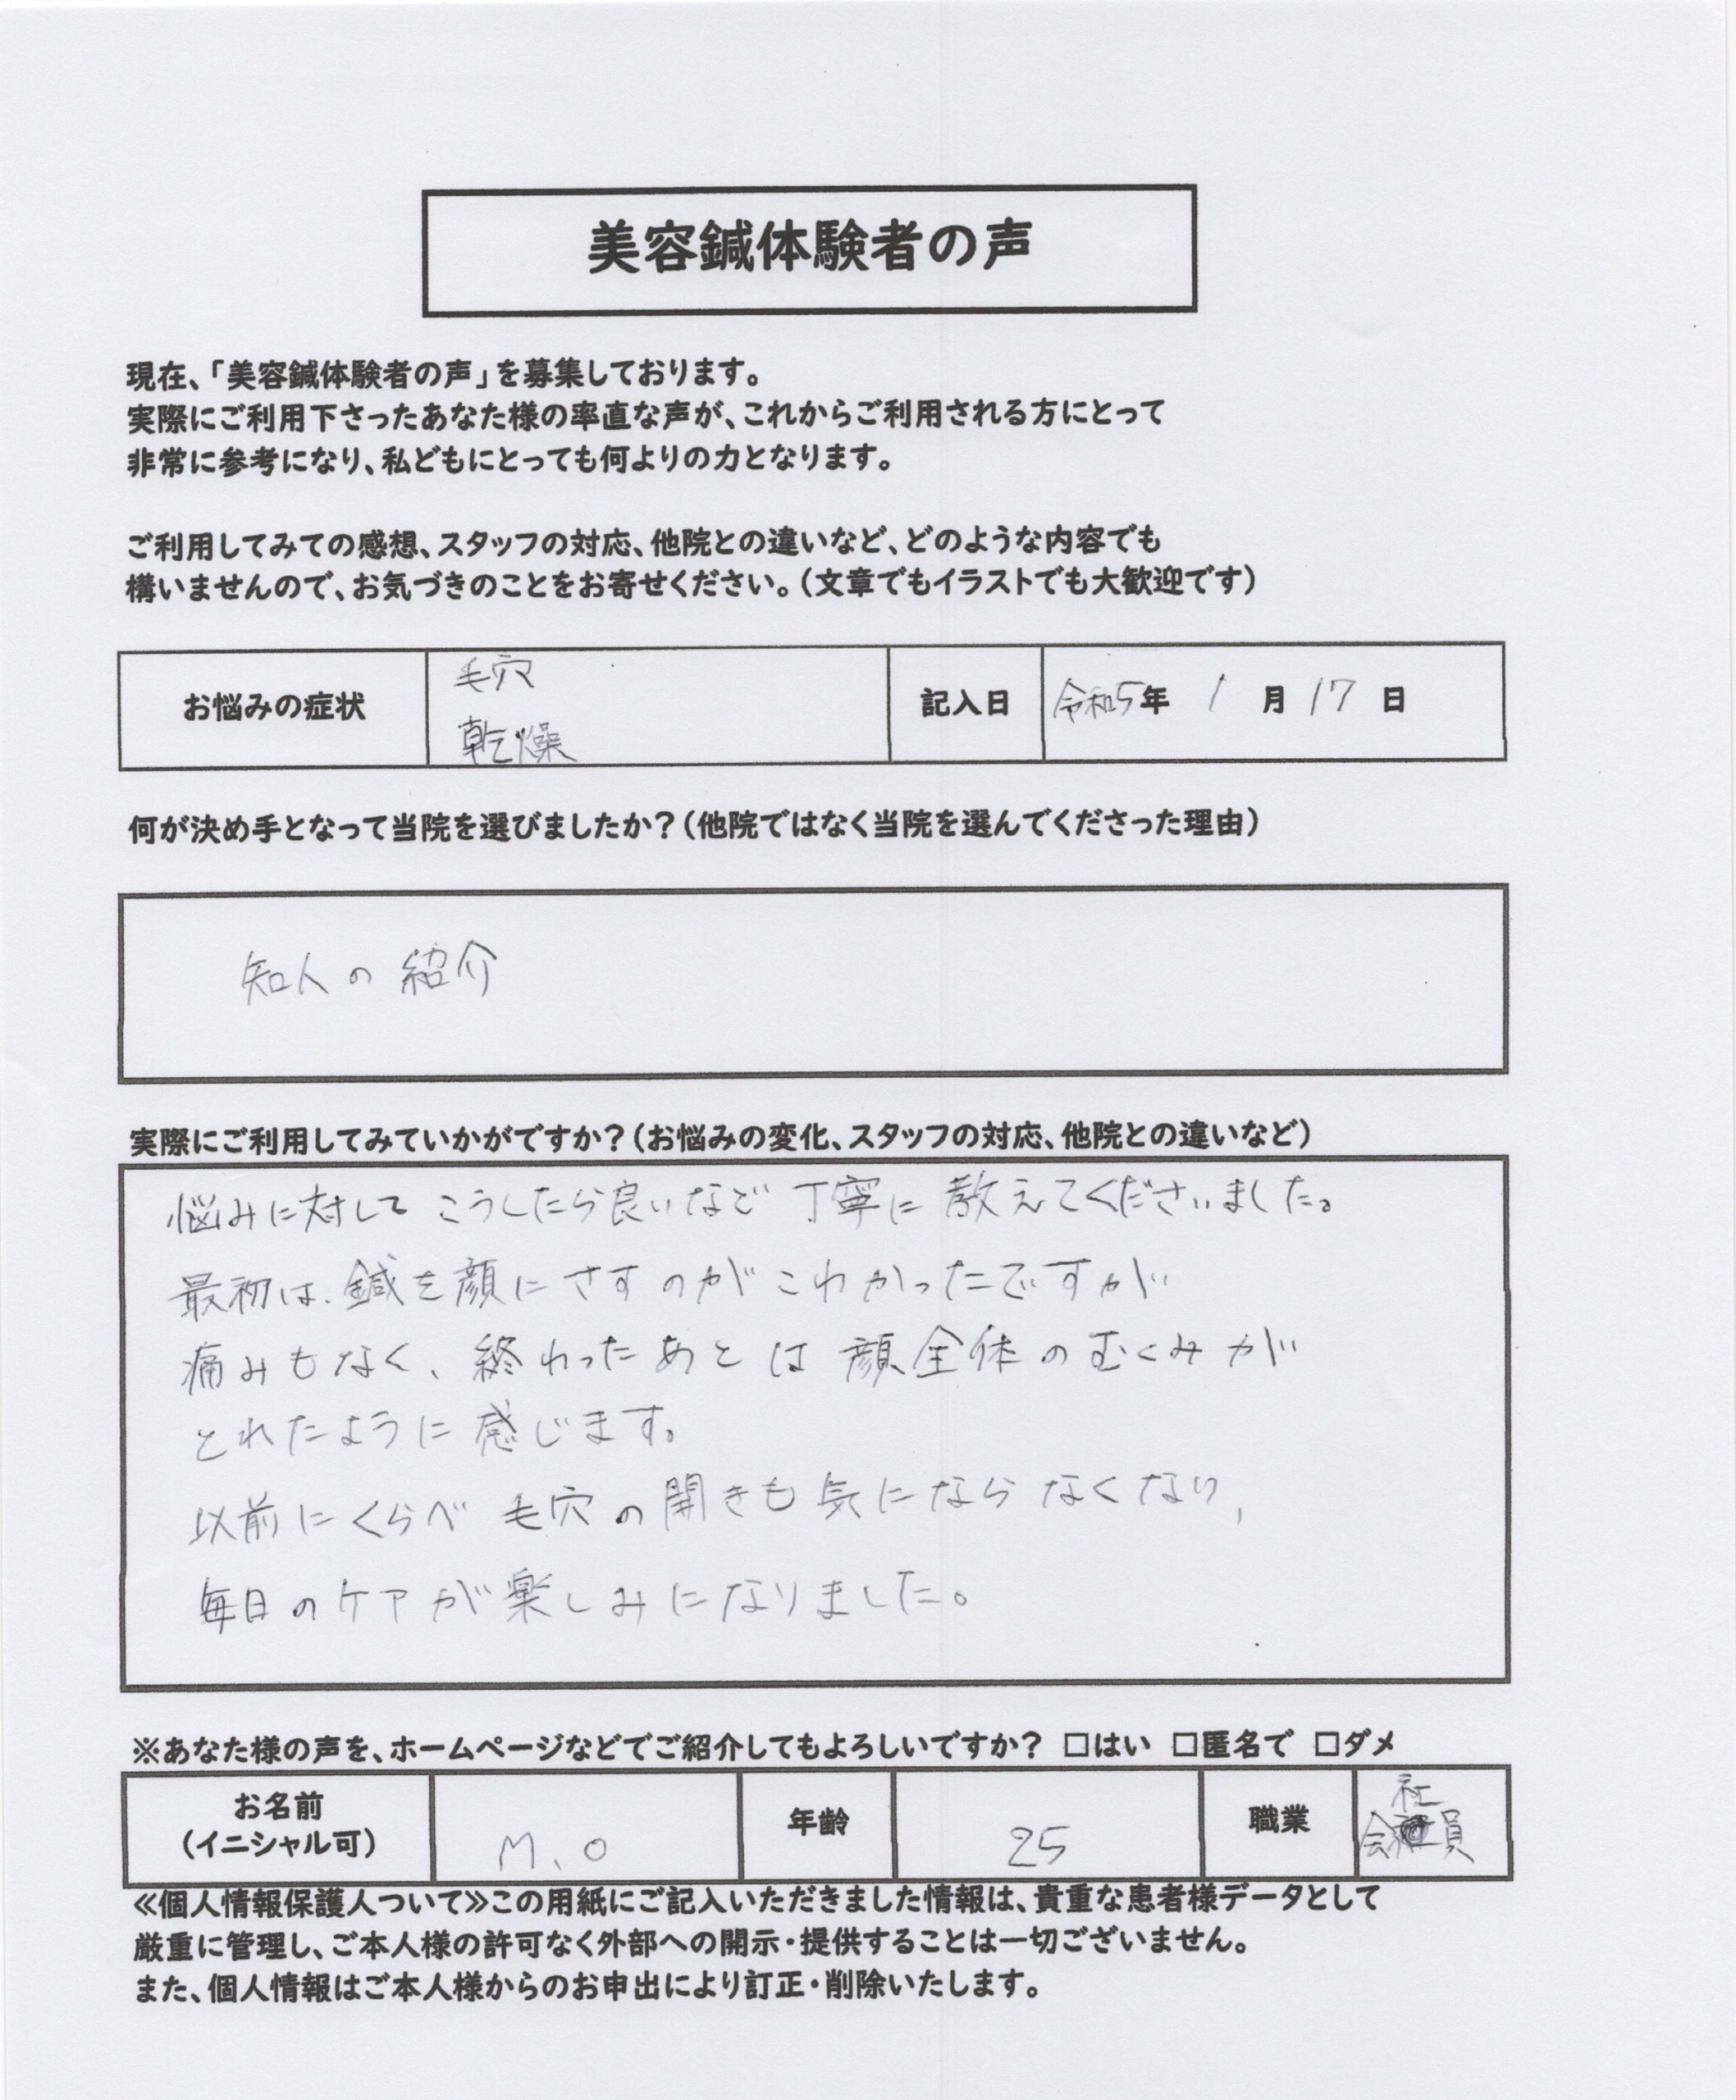 美容鍼体験者の声
現在、「美容鍼体験者の声」を募集しております。
実際にご利用下さったあなた様の率直な声が、これからご利用される方にとって
非常に参考になり、私どもにとっても何よりの力となります。
ご利用してみての感想、スタッフの対応、他院との違いなど、どのような内容でも
構いませんので、お気づきのことをお寄せください。（文章でもイラストでも大歓迎です）
お悩みの症状
毛穴
乾燥
記入日
令和5年 1月17日
何が決め手となって当院を選びましたか？（他院ではなく当院を選んでくださった理由）
知人の紹介
実際にご利用してみていかがですか？（お悩みの変化、スタッフの対応、他院との違いなど）
悩みに対して こうしたら良いなど 丁寧に 教えてくださいました。
最初は、鍼を顔にさすのがこわかったですが
痛みもなく、終わったあとは顔全体のむくみが
とれたように感じます。
以前にくらべ 毛穴の開きも気にならなくなり、
毎日のケアが楽しみになりました。
※あなた様の声を、ホームページなどでご紹介してもよろしいですか？ □はい □匿名で □ダメ
お名前
（イニシャル可）
M.O
年齢
25
職業
社
会員
≪個人情報保護人ついて≫この用紙にご記入いただきました情報は、貴重な患者様データとして
厳重に管理し、ご本人様の許可なく外部への開示・提供することは一切ございません。
また、個人情報はご本人様からのお申出により訂正・削除いたします。